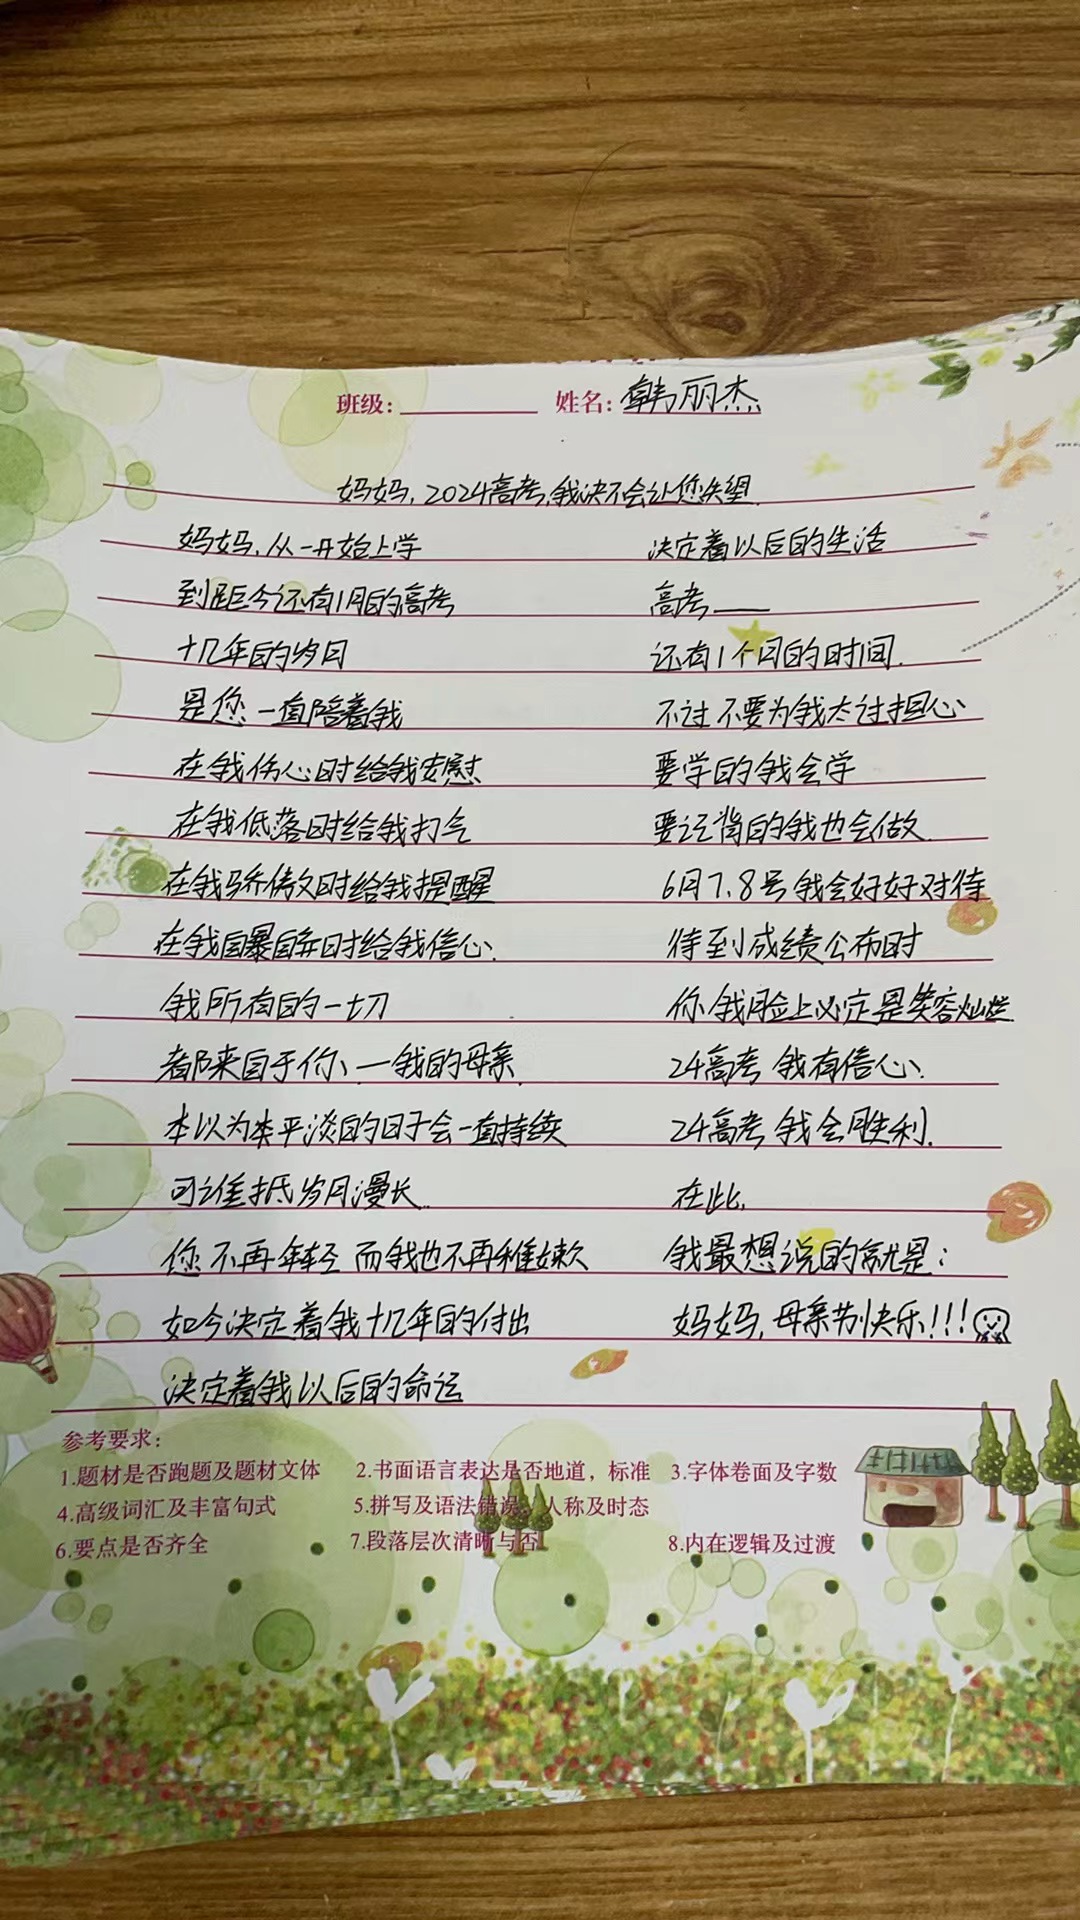 班级: 姓名: 韩丽杰
妈妈,2024高考,我决不会让您失望.
妈妈,从一开始上学
到距今还有1月的高考
十几年的岁月
是您一直陪着我
在我伤心时给我安慰
在我低落时给我打气
在我骄傲时给我提醒
在我自暴自弃时给我信心.
我所有的一切
都来自于你、一我的母亲.
本以为本平淡的日子会一直持续
可谁抵岁月漫长.
您不再年轻 而我也不再稚嫩
如今决定着我十几年的付出
决定着我以后的命运
决定着以后的生活
高考——
还有1个月的时间.
不过不要为我太过担心
要学的我会学
要记背的我也会做.
6月7.8号我会好好对待
待到成绩公布时
你我脸上必定是笑容灿烂
24高考 我有信心.
24高考 我会胜利.
在此,
我最想说的就是:
妈妈,母亲节快乐!!!
参考要求:
1.题材是否跑题及题材文体 2.书面语言表达是否地道,标准 3.字体卷面及字数
4.高级词汇及丰富句式 5.拼写及语法错误、人称及时态
6.要点是否齐全 7.段落层次清晰与否 8.内在逻辑及过渡